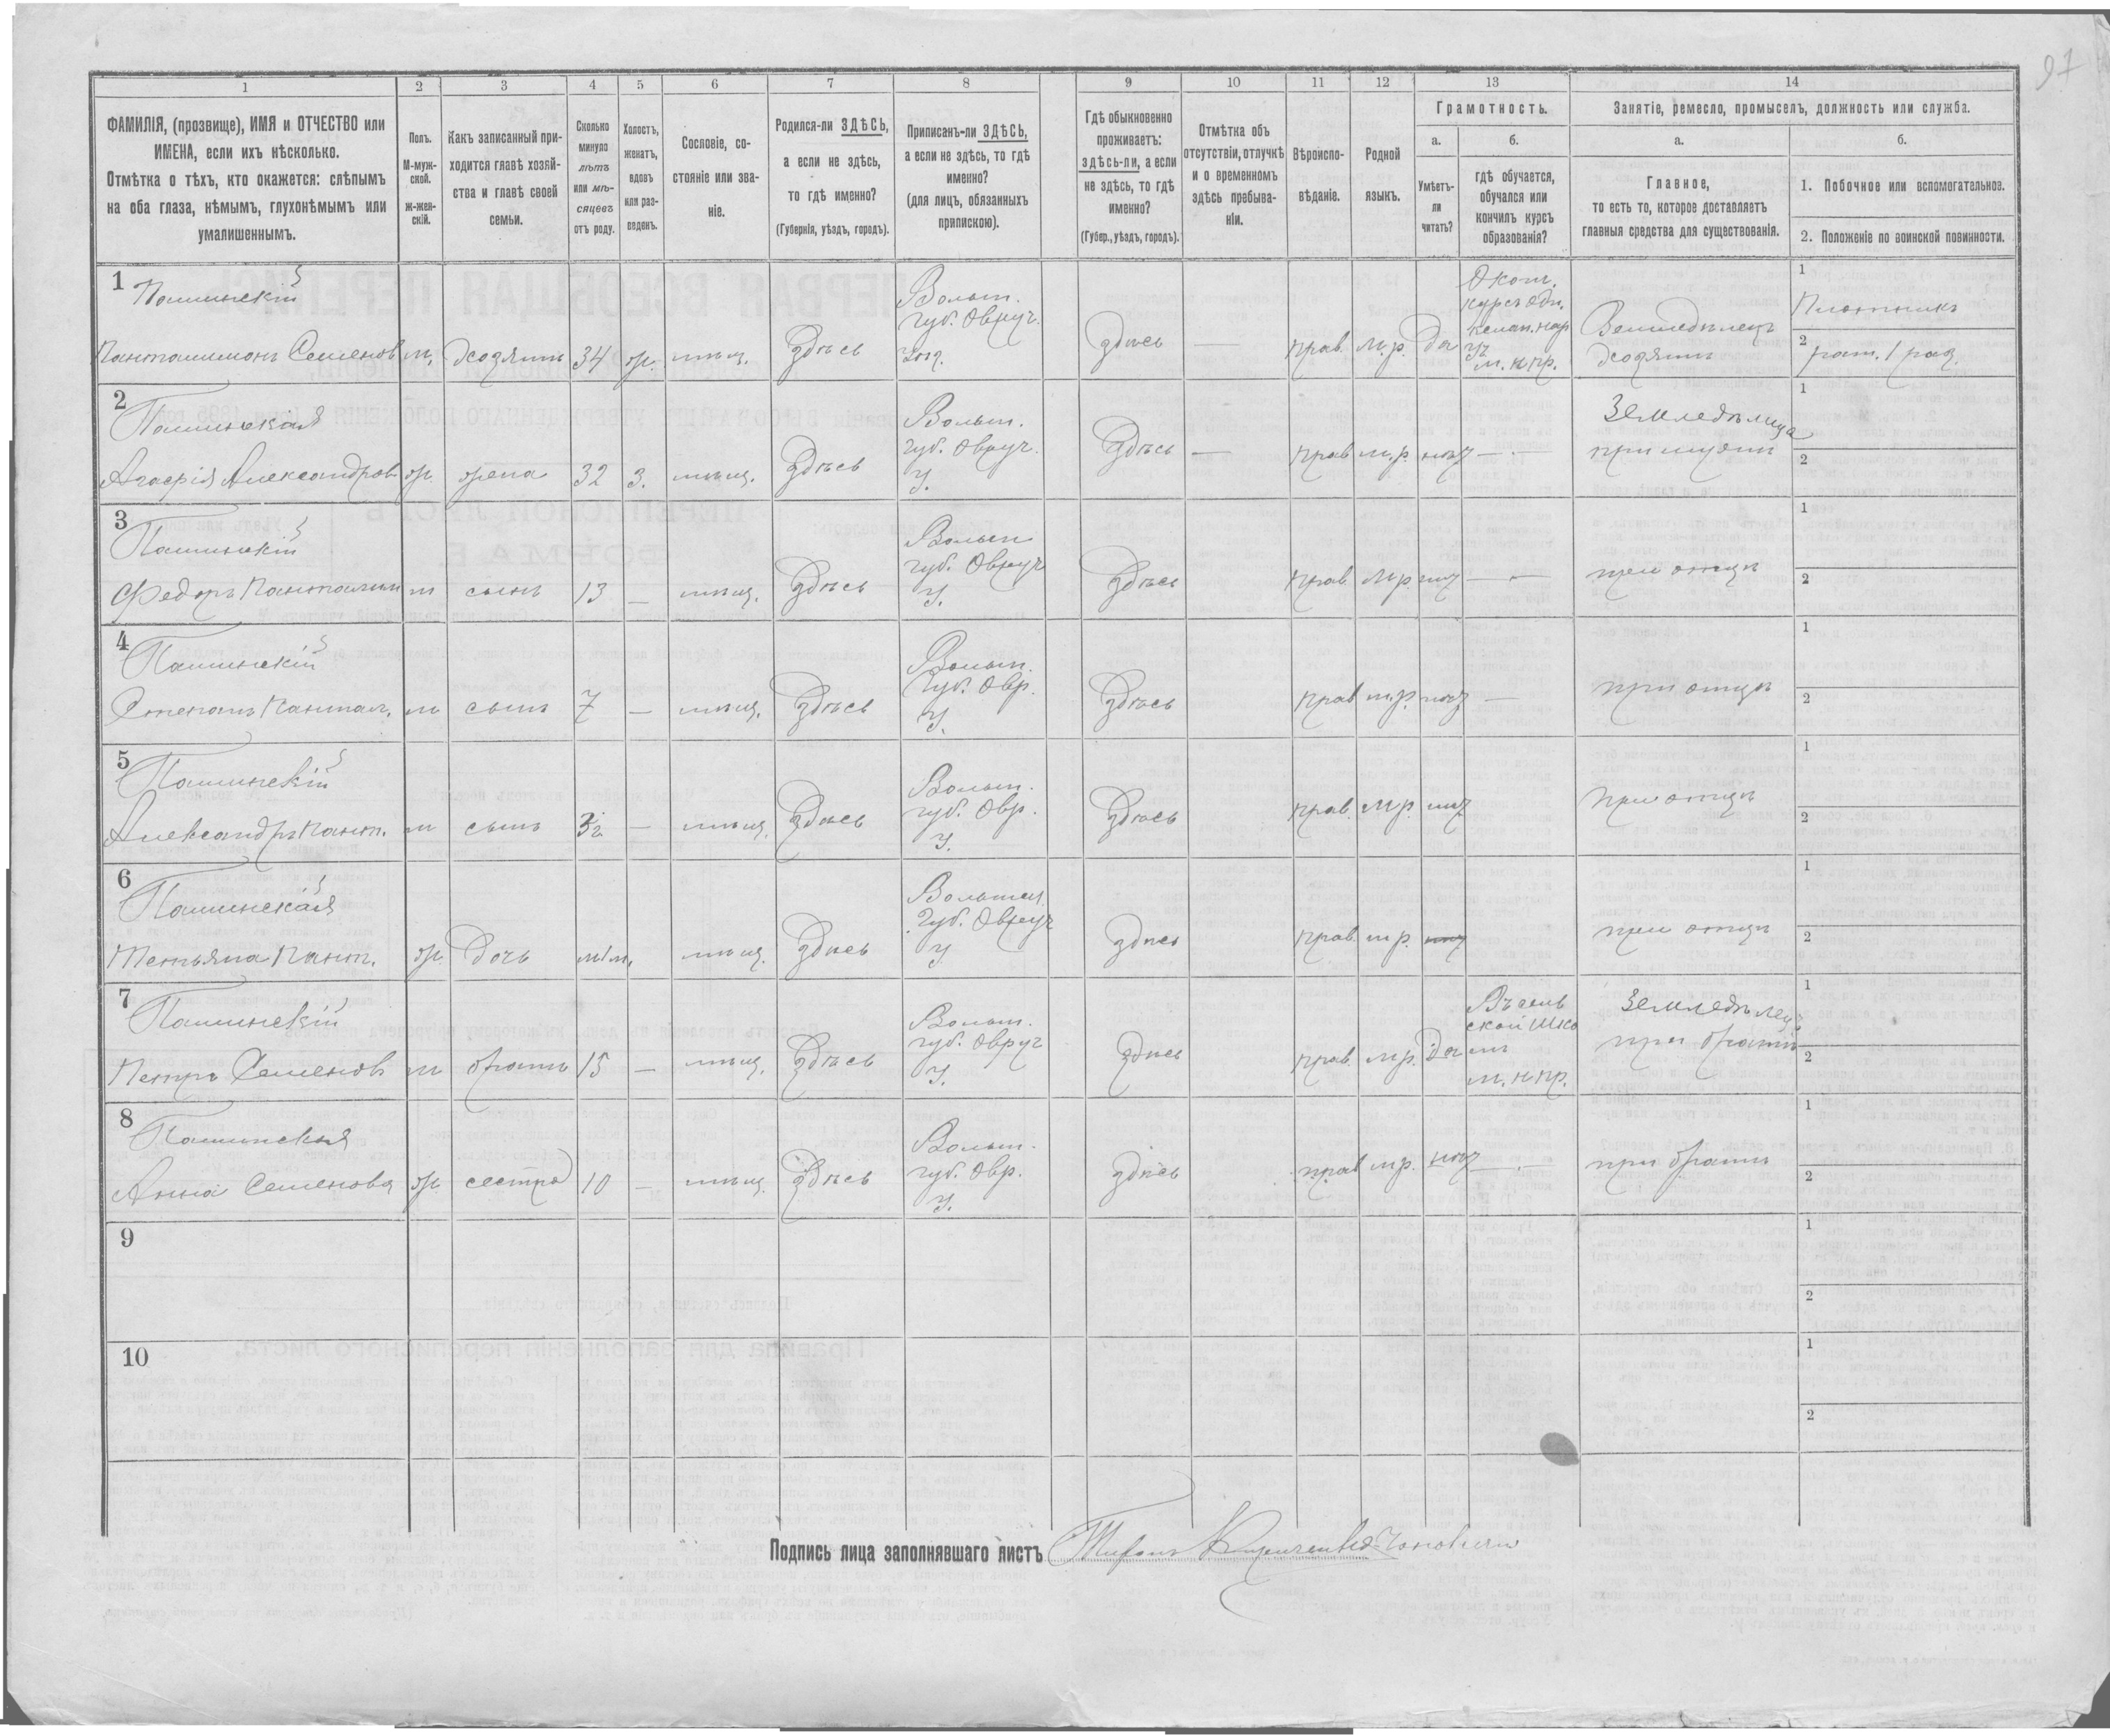 97
1 2 3 4 5 6 7 8 9 10 11 12 13 14
ФАМИЛІЯ, (прозвище), ИМЯ и ОТЧЕСТВО или
ИМЕНА, если ихъ нѣсколько.
Отмѣтка о тѣхъ, кто окажется: слѣпымъ
на оба глаза, нѣмымъ, глухонѣмымъ или
умалишеннымъ.
Полъ.
М-муж-
ской.
Ж-жен-
скій.
Какъ записанный при-
ходится главѣ хозяй-
ства и главѣ своей
семьи.
Сколько
минуло
лѣтъ
или мѣ-
сяцевъ
отъ роду.
Холостъ,
женатъ,
вдовъ
или раз-
веденъ.
Сословіе, со-
стояніе или зва-
ніе.
Родился-ли ЗДѢСЬ,
а если не здѣсь,
то гдѣ именно?
(Губернія, уѣздъ, городъ).
Приписанъ-ли ЗДѢСЬ,
а если не здѣсь, то гдѣ
именно?
(для лицъ, обязанныхъ
припискою).
Гдѣ обыкновенно
проживаетъ:
здѣсь-ли, а если
не здѣсь, то гдѣ
именно?
(Губер., уѣздъ, городъ).
Отмѣтка объ
отсутствіи, отлучкѣ
и о временномъ
здѣсь пребыва-
ніи.
Вѣроиспо-
вѣданіе.
Родной
языкъ.
Грамотность.
а.
Умѣетъ-
ли
читать?
б.
гдѣ обучается,
обучался или
кончилъ курсъ
образованія?
Занятіе, ремесло, промыселъ, должность или служба.
а.
Главное,
то есть то, которое доставляетъ
главныя средства для существованія.
б.
1. Побочное или вспомогательное.
2. Положеніе по воинской повинности.
1
Пашинскій
Пантелимонъ Семенов м. хозяинъ 34 ж. мѣщ. здѣсь
Волын.
губ. Овруч.
здѣсь — прав. м.р. да
м. н. пр.
хозяинъ
1
Плотникъ
2
2
Пашинская
Агафія Александров ж. жена 32 з. мѣщ. здѣсь
Волын.
губ. Овруч.
у.
здѣсь — прав м.р. нѣт —
Земледѣлица
при мужи
1
2
3
Пашинскій
Федоръ м сынъ 13 — мѣщ. здѣсь
Волын
губ. Овруч
у.
здѣсь прав м.р. нѣт —
при отцѣ
1
2
4
Пашинскій
Степанъ Пантал. м сынъ 7 — мѣщ. здѣсь
Волын.
губ. Овр.
у.
здѣсь прав м.р. нѣт —
при отцѣ
1
2
5
Пашинскій
Александръ Пант. м сынъ — мѣщ. здѣсь
Волын.
губ. Овр.
у.
здѣсь прав. м.р. нѣт
при отцѣ
1
2
6
Пашинская
Тетьяна Пант. ж. дочь мѣщ. здѣсь
губ. Овруч
у
здѣсь прав м.р. нѣт
при отцѣ
1
2
7
Пашинскій
Петръ Семенов м братъ 15 — мѣщ. здѣсь
Волын.
губ. Овруч
у.
здѣсь прав. м.р. да
Въ сель
ской шко
лѣ
м. н. пр.
Земледѣлец
при братѣ
1
2
8
Пашинская
Анна Семенова ж сестра 10 — мѣщ. здѣсь
Волын.
губ. Овр.
у.
здѣсь прав м.р. нѣт —
при братѣ
1
2
9
1
2
10
1
2
Подпись лица заполнявшаго листъ